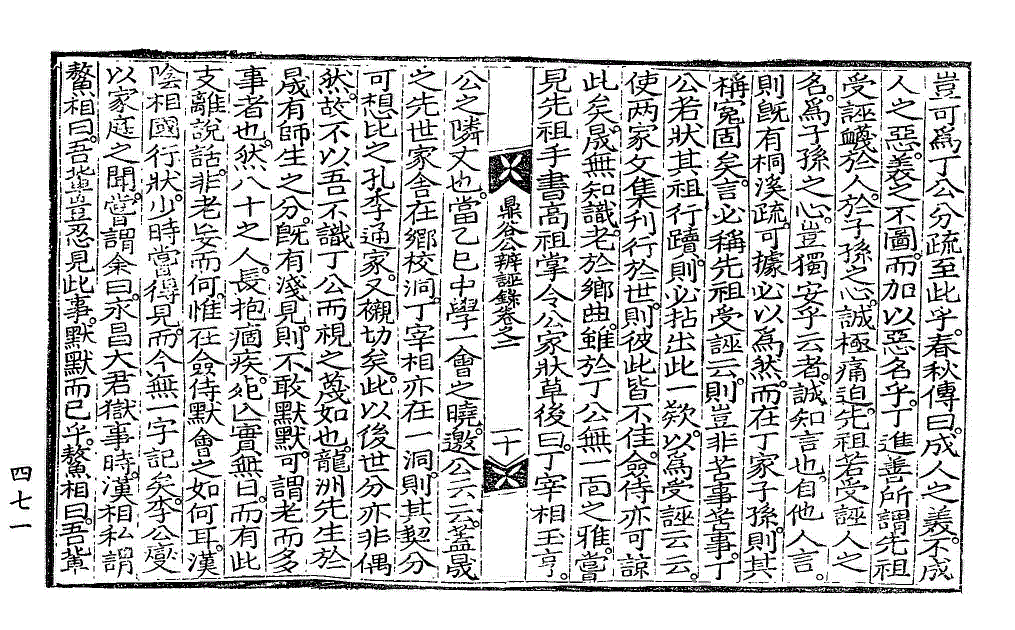 豈可爲丁公分疏至此乎春秋傳曰成人之義不成
人之惡義之不圖而加以惡名乎丁進善所謂先祖
受誣衊於人於子孫之心誠極痛迫先祖若受誣人之
名爲子孫之心豈獨安乎云者誠知言也自他人言
則旣有桐溪疏可據必以爲然而在丁家子孫則其
稱寃固矣言必稱先祖受誣云則豈非苦事苦事丁
公若狀其祖行蹟則必拈出此一欵以爲受誣云云
使两家文集刊行於世則彼此皆不佳僉侍亦可諒
此矣晟無知識老於鄉曲雖於丁公無一面之雅嘗
見先祖手書高祖掌令公家狀草後曰丁宰相玉亨
鼎谷公辨誣錄卷之一 十
公之隣丈也當乙巳中學一會之曉邀公云云蓋晟
之先世家舍在鄉校洞丁宰相亦在一洞則其契分
可想比之孔李通家又襯切矣此以後世分亦非偶
然故不以吾不識丁公而視之蔑如也龍洲先生於
晟有師生之分旣有淺見則不敢默默可謂老而多
事者也然八十之人長抱痼疾死亾實無日而有此
支離說話非老妄而何惟在僉侍默會之如何耳漢
陰相國行狀少時嘗得見而今無一字記矣李公𡒉
以家庭之聞嘗謂余曰永昌大君獄事時漢相私謂
鰲相曰吾輩豈忍見此事默默而已乎鰲相曰吾輩
四七一